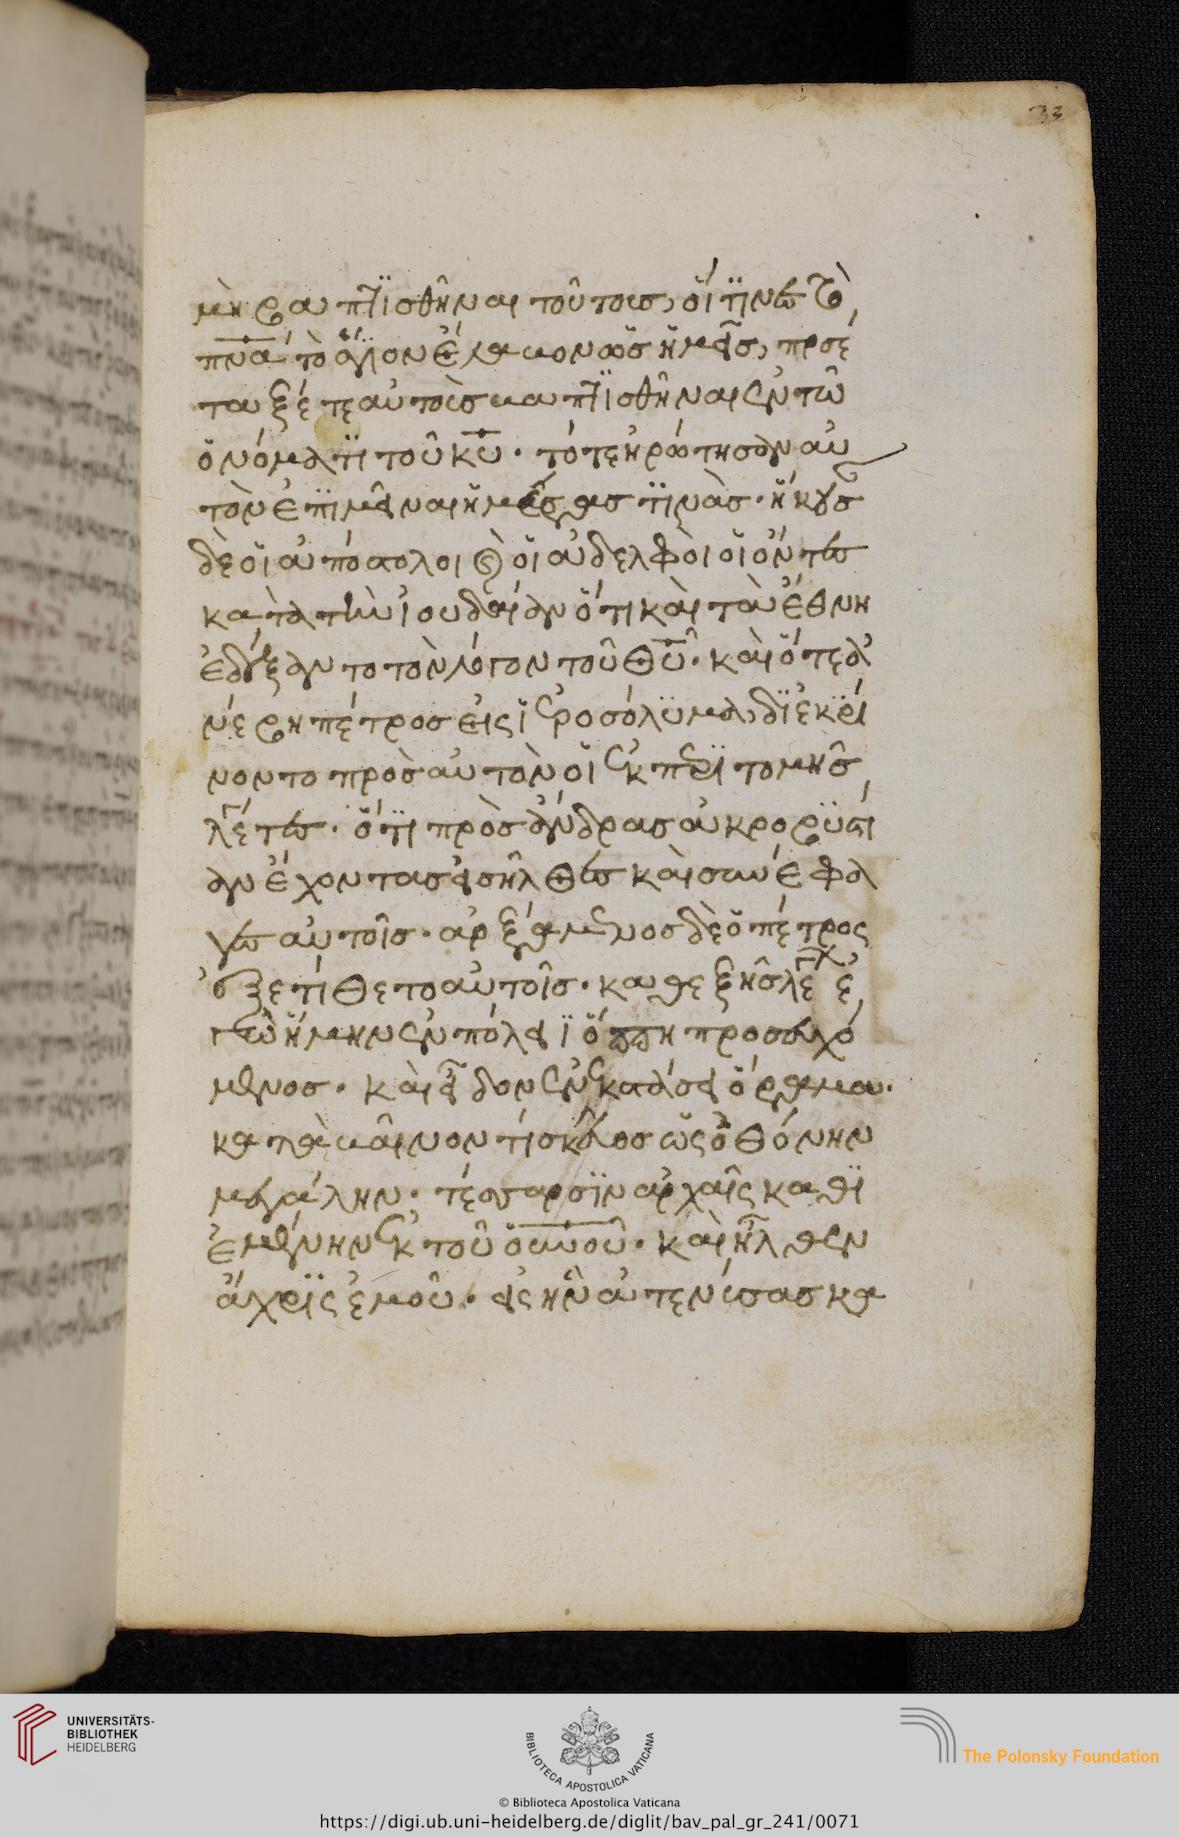 33
μὴ βαπτϊσθῆναι τοῦτους, οἵ τϊνες τὸ
πνᾶ τὸ ἅγϊον ἔλαβον ὡς ἡμεῖς, προσέ
ταξέ τε αὐτοὶς βαπτϊσθῆναι ἐν τῶ
ὀνόματϊ τοῦ κυ̅. τότε ἠρώτησαν αὐ
τὸν ἐπϊμεῖναι ἡμέρας τϊνὰς. ἤκους
δὲ οἱ ἀπόστολοι καὶ οἱ ἀδελφὸι οἱ ὄντες
κατὰ τὴν ἰουδαίαν ὅτι καὶ τὰ ἔθνη
ἐδέξαντο τὸν λόγον τοῦ θυ̅. καὶ ὅτε ἀ
νέβη πέτρος εἰς ἱεροσόλϋμα, δϊεκρί
νοντο πρὸς αὐτὸν οἱ ἐκ περϊτομῆς
λέγοντες. ὅτϊ πρὸς ἄνδρας ἀκροβϋστί
αν ἔχοντας εἰσῆλθες καὶ συνέφα
γες αὐτοῖς. ἀρξάμενος δὲ ὁ πέτρος
ἐξετίθετο αὐτοῖς. καθεξῆς λέγων ἐ
γὼ ἤμην ἐν πόλει ϊόππη προσευχό
μενος. καὶ εἶδον ἐν ἐκστάσει ὅραμα.
καταβαῖνον τὶ σκεῦος ὡς ὀθόνην
μεγάλην. τέσσαρσϊν ἀρχαῖς καθϊ
εμένην ἐκ τοῦ οὐνοῦ. καὶ ἦλθεν
ἄχρϊς ἐμοῦ. εἰς ἣν ἀτενίσας κα
UNIVERSITÄTS-
BIBLIOTHEK
HEIDELBERG
BIBLIOTECA APOSTOLICA VATICANA
The Polonsky Foundation
© Biblioteca Apostolica Vaticana
https://digi.ub.uni-heidelberg.de/diglit/bav_pal_gr_241/0071